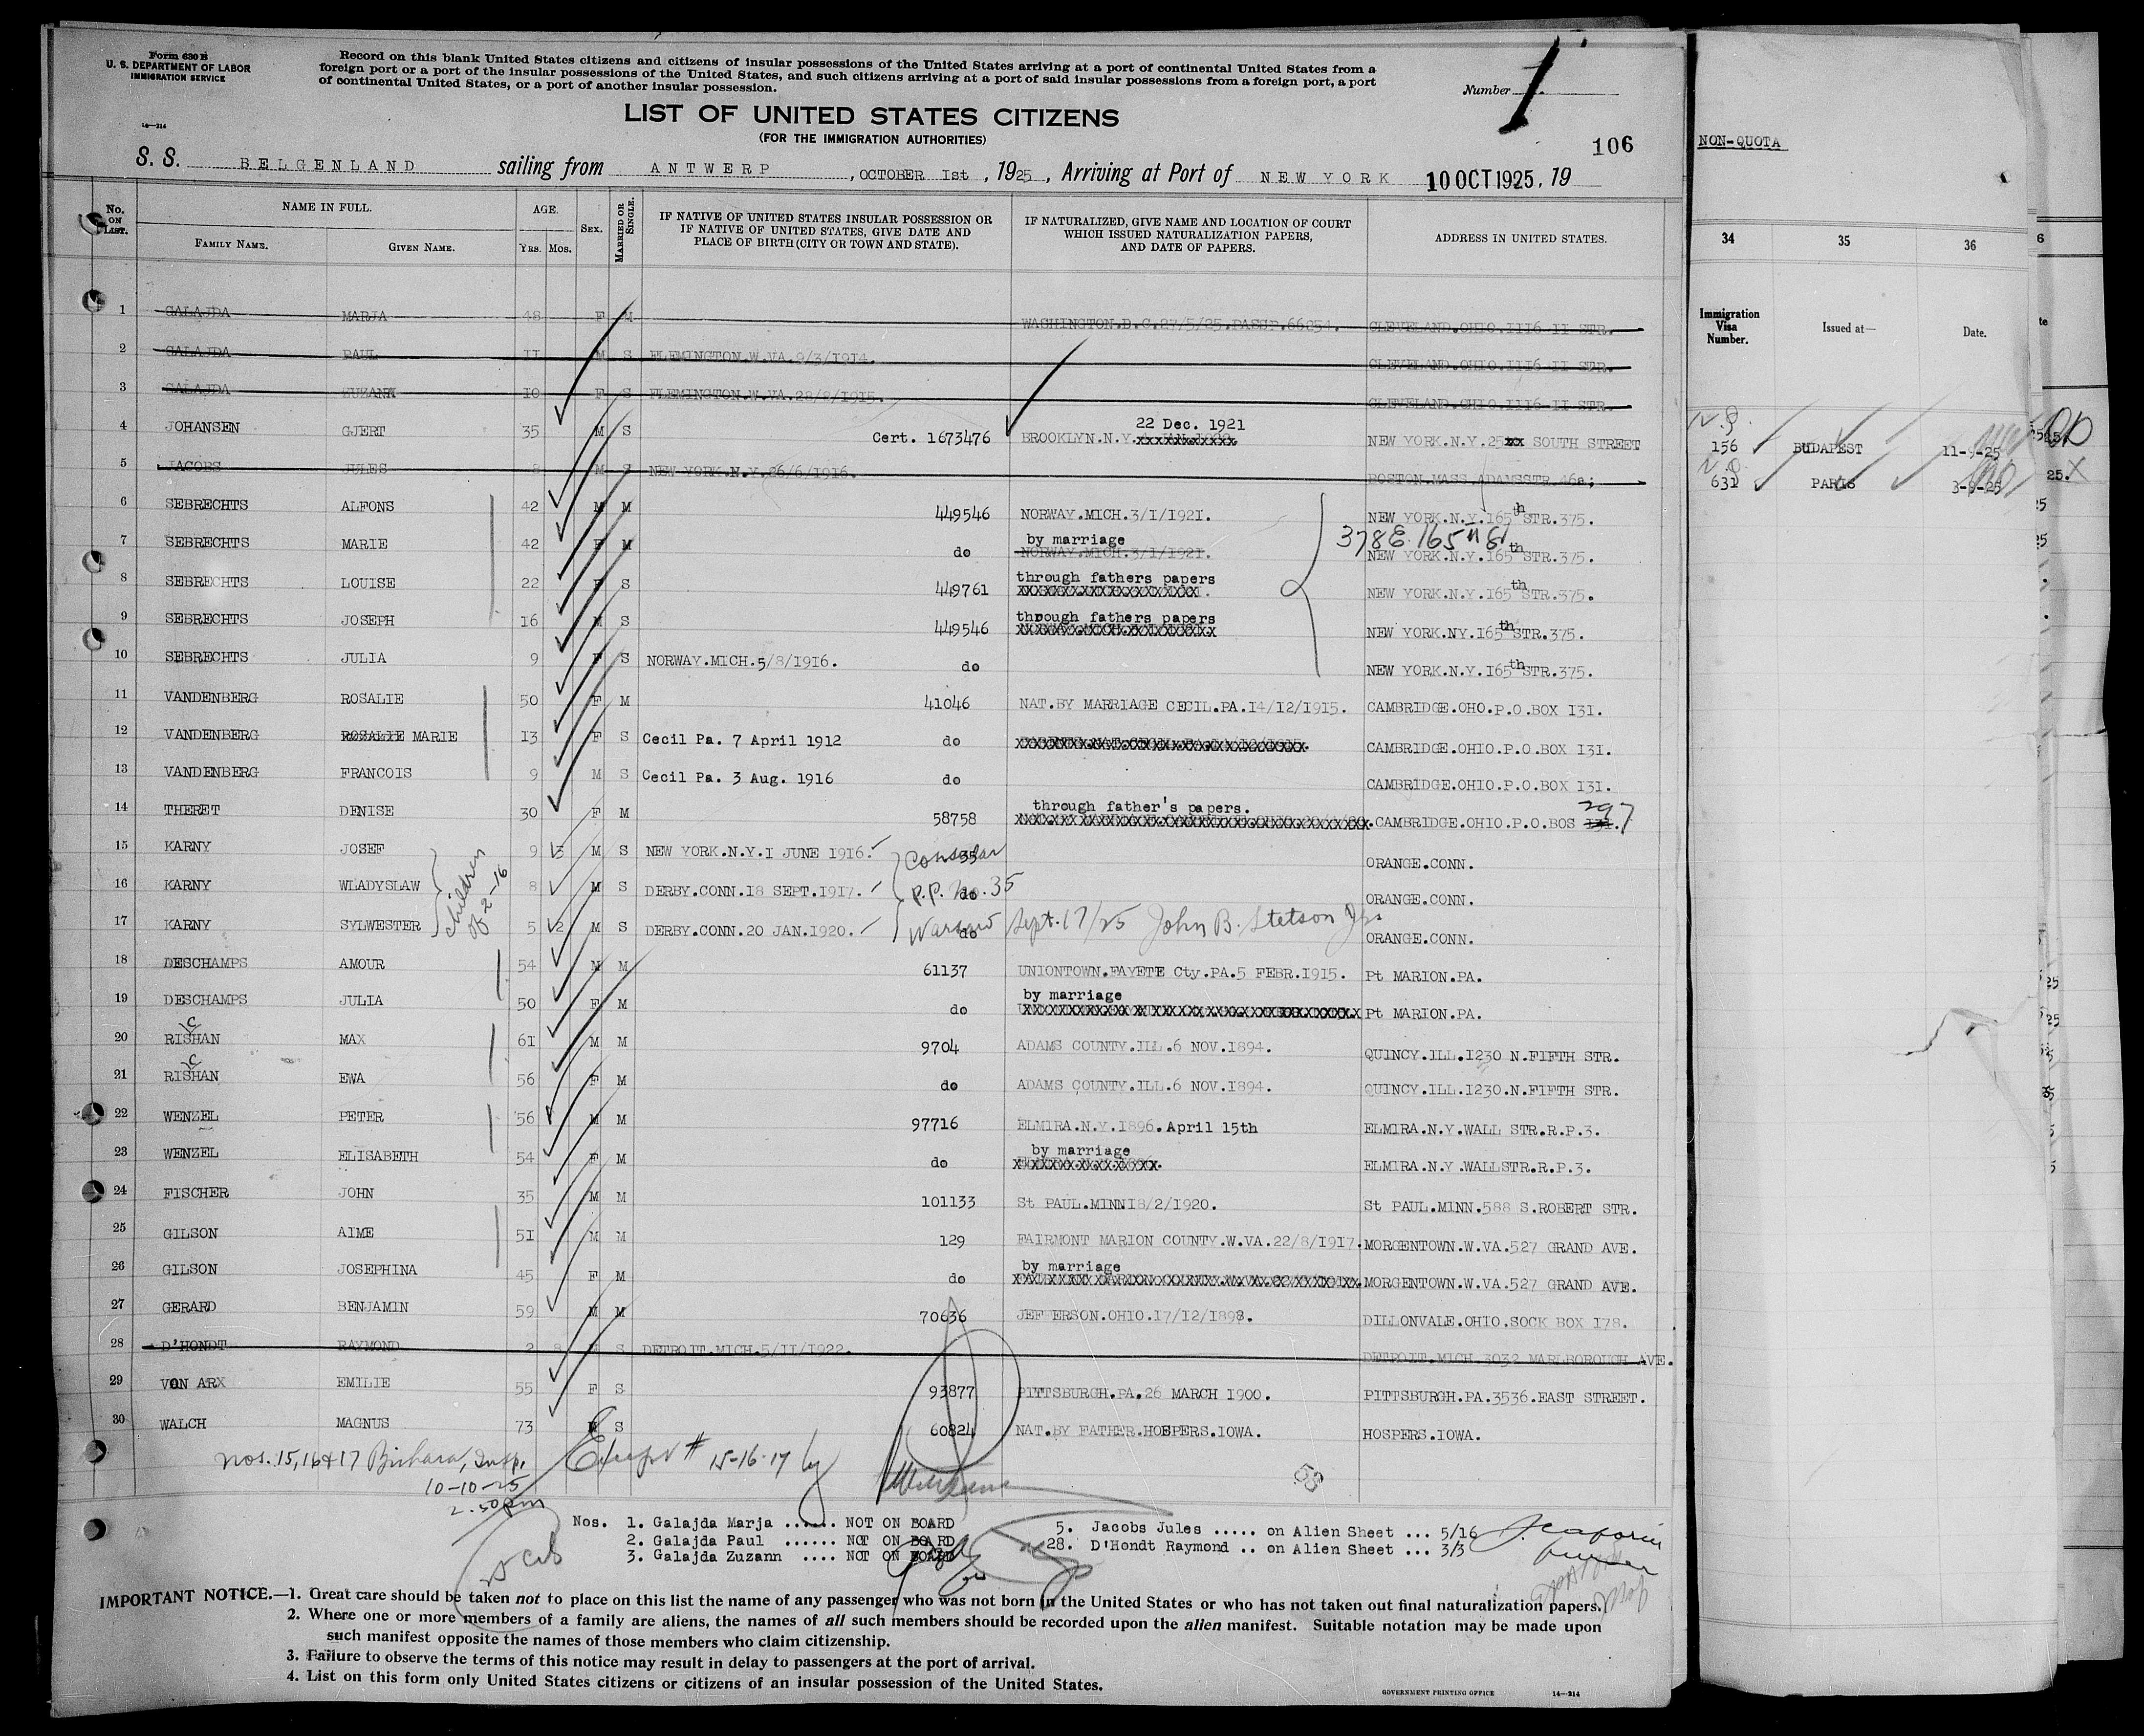 Form 630 B
U. S. DEPARTMENT OF LABOR
IMMIGRATION SERVICE
Record on this blank United States citizens and citizens of insular possessions of the United States arriving at a port of continental United States from a
foreign port or a port of the insular possessions of the United States, and such citizens arriving at a port of said insular possessions from a foreign port, a port
of continental United States, or a port of another insular possession.
Number 1
14—214
LIST OF UNITED STATES CITIZENS
(FOR THE IMMIGRATION AUTHORITIES)
106
S. S. BELGENLAND sailing from ANTWERP, OCTOBER 1st, 1925, Arriving at Port of NEW YORK 10 OCT 1925, 19
No. ON LIST. NAME IN FULL. FAMILY NAME. GIVEN NAME. AGE. YRS. MOS. SEX. MARRIED OR SINGLE. IF NATIVE OF UNITED STATES INSULAR POSSESSION OR IF NATIVE OF UNITED STATES, GIVE DATE AND PLACE OF BIRTH (CITY OR TOWN AND STATE). IF NATURALIZED, GIVE NAME AND LOCATION OF COURT WHICH ISSUED NATURALIZATION PAPERS, AND DATE OF PAPERS. ADDRESS IN UNITED STATES.
1 GALAJDA MARJA 48 F M WASHINGTON.D.C.27/5/25.PASSP.66254. CLEVELAND.OHIO.III6 II STR.
2 GALAJDA PAUL II M S FLEMINGTON.W.VA.9/3/1914. CLEVELAND.OHIO.III6 II STR.
3 GALAJDA ZUZANN IO F S FLEMINGTON.W.VA.28/8/1915. CLEVELAND.OHIO.III6 II STR.
4 JOHANSEN GJERT 35 M S Cert. 1673476 BROOKLYN.N.Y. 22 Dec. 1921 NEW YORK.N.Y.25 SOUTH STREET
5 JACOBS JULES M S NEW YORK.N.Y.26/6/1916. BOSTON.MASS.ADAMSSTR.46a;
6 SEBRECHTS ALFONS 42 M M 449546 NORWAY.MICH.3/1/1921. NEW YORK.N.Y.165th STR.375.
378 E. 165th St
7 SEBRECHTS MARIE 42 F M do by marriage NORWAY.MICH.3/1/1921. NEW YORK.N.Y.165th STR.375.
8 SEBRECHTS LOUISE 22 F S 449761 through fathers papers NEW YORK.N.Y.165th STR.375.
9 SEBRECHTS JOSEPH 16 M S 449546 through fathers papers NEW YORK.NY.165th STR.375.
10 SEBRECHTS JULIA 9 F S NORWAY.MICH.5/8/1916. do NEW YORK.N.Y.165th STR.375.
11 VANDENBERG ROSALIE 50 F M 41046 NAT.BY MARRIAGE CECIL.PA.14/12/1915. CAMBRIDGE.OHO.P.O.BOX 131.
12 VANDENBERG ROSALIE MARIE 13 F S Cecil Pa. 7 April 1912 do CAMBRIDGE.OHIO.P.O.BOX 131.
13 VANDENBERG FRANCOIS 9 M S Cecil Pa. 3 Aug. 1916 do CAMBRIDGE.OHIO.P.O.BOX 131.
14 THERET DENISE 30 F M 58758 through father's papers. CAMBRIDGE.OHIO.P.O.BOS 131. 297
15 KARNY JOSEF 9 3 M S NEW YORK.N.Y.I JUNE 1916. 35 Consular ORANGE.CONN.
16 KARNY WLADYSLAW 8 M S DERBY.CONN.18 SEPT.1917. do P.P. No. 35 ORANGE.CONN.
17 KARNY SYLWESTER 5 2 M S DERBY.CONN.20 JAN.1920. do Warsaw Sept. 17/25 John B. Stetson Jr. ORANGE.CONN.
children of 2-16
18 DESCHAMPS AMOUR 54 M M 61137 UNIONTOWN.FAYETE Cty.PA.5 FEBR.1915. Pt MARION.PA.
19 DESCHAMPS JULIA 50 F M do by marriage Pt MARION.PA.
20 RISCHAN MAX 61 M M 9704 ADAMS COUNTY.ILL.6 NOV.1894. QUINCY.ILL.1230 N.FIFTH STR.
21 RISCHAN EWA 56 F M do ADAMS COUNTY.ILL.6 NOV.1894. QUINCY.ILL.1230.N.FIFTH STR.
22 WENZEL PETER 56 M M 97716 ELMIRA.N.Y.1896.April 15th ELMIRA.N.Y.WALL STR.R.P.3.
23 WENZEL ELISABETH 54 F M do by marriage ELMIRA.N.Y.WALLSTR.R.P.3.
24 FISCHER JOHN 35 M M 101133 St PAUL.MINN18/2/1920. St PAUL.MINN.588 S.ROBERT STR.
25 GILSON AIME 51 M M 129 FAIRMONT MARION COUNTY.W.VA.22/8/1917. MORGENTOWN.W.VA.527 GRAND AVE.
26 GILSON JOSEPHINA 45 F M do by marriage MORGENTOWN.W.VA.527 GRAND AVE.
27 GERARD BENJAMIN 59 M M 70636 JEFFERSON.OHIO.17/12/1898. DILLONVALE.OHIO.SOCK BOX 178.
28 D'HONDT RAYMOND 2 8 S DETROIT.MICH.5/II/1922. DETROIT.MICH.3032 MARLBOROUGH AVE.
29 VON ARX EMILIE 55 F S 93877 PITTSBURGH.PA.26 MARCH 1900. PITTSBURGH.PA.3536.EAST STREET.
30 WALCH MAGNUS 73 M S 60824 NAT.BY FATHER.HOSPERS.IOWA. HOSPERS.IOWA.
Nos. 15, 16 & 17 Bishara, Insp.
10-10-25
2.50 pm
Except # 15-16-17 by
53
Nos. 1. Galajda Marja ...... NOT ON BOARD
2. Galajda Paul ...... NOT ON BOARD
3. Galajda Zuzann .... NOT ON BOARD
5. Jacobs Jules ..... on Alien Sheet ... 5/16
28. D'Hondt Raymond .. on Alien Sheet ... 3/3
IMPORTANT NOTICE.—1. Great care should be taken not to place on this list the name of any passenger who was not born in the United States or who has not taken out final naturalization papers.
2. Where one or more members of a family are aliens, the names of all such members should be recorded upon the alien manifest. Suitable notation may be made upon
such manifest opposite the names of those members who claim citizenship.
3. Failure to observe the terms of this notice may result in delay to passengers at the port of arrival.
4. List on this form only United States citizens or citizens of an insular possession of the United States.
GOVERNMENT PRINTING OFFICE 14—214
NON-QUOTA
34 35 36
Immigration Visa Number. Issued at— Date.
156 BUDAPEST 11-9-25
631 PARIS 3-9-25